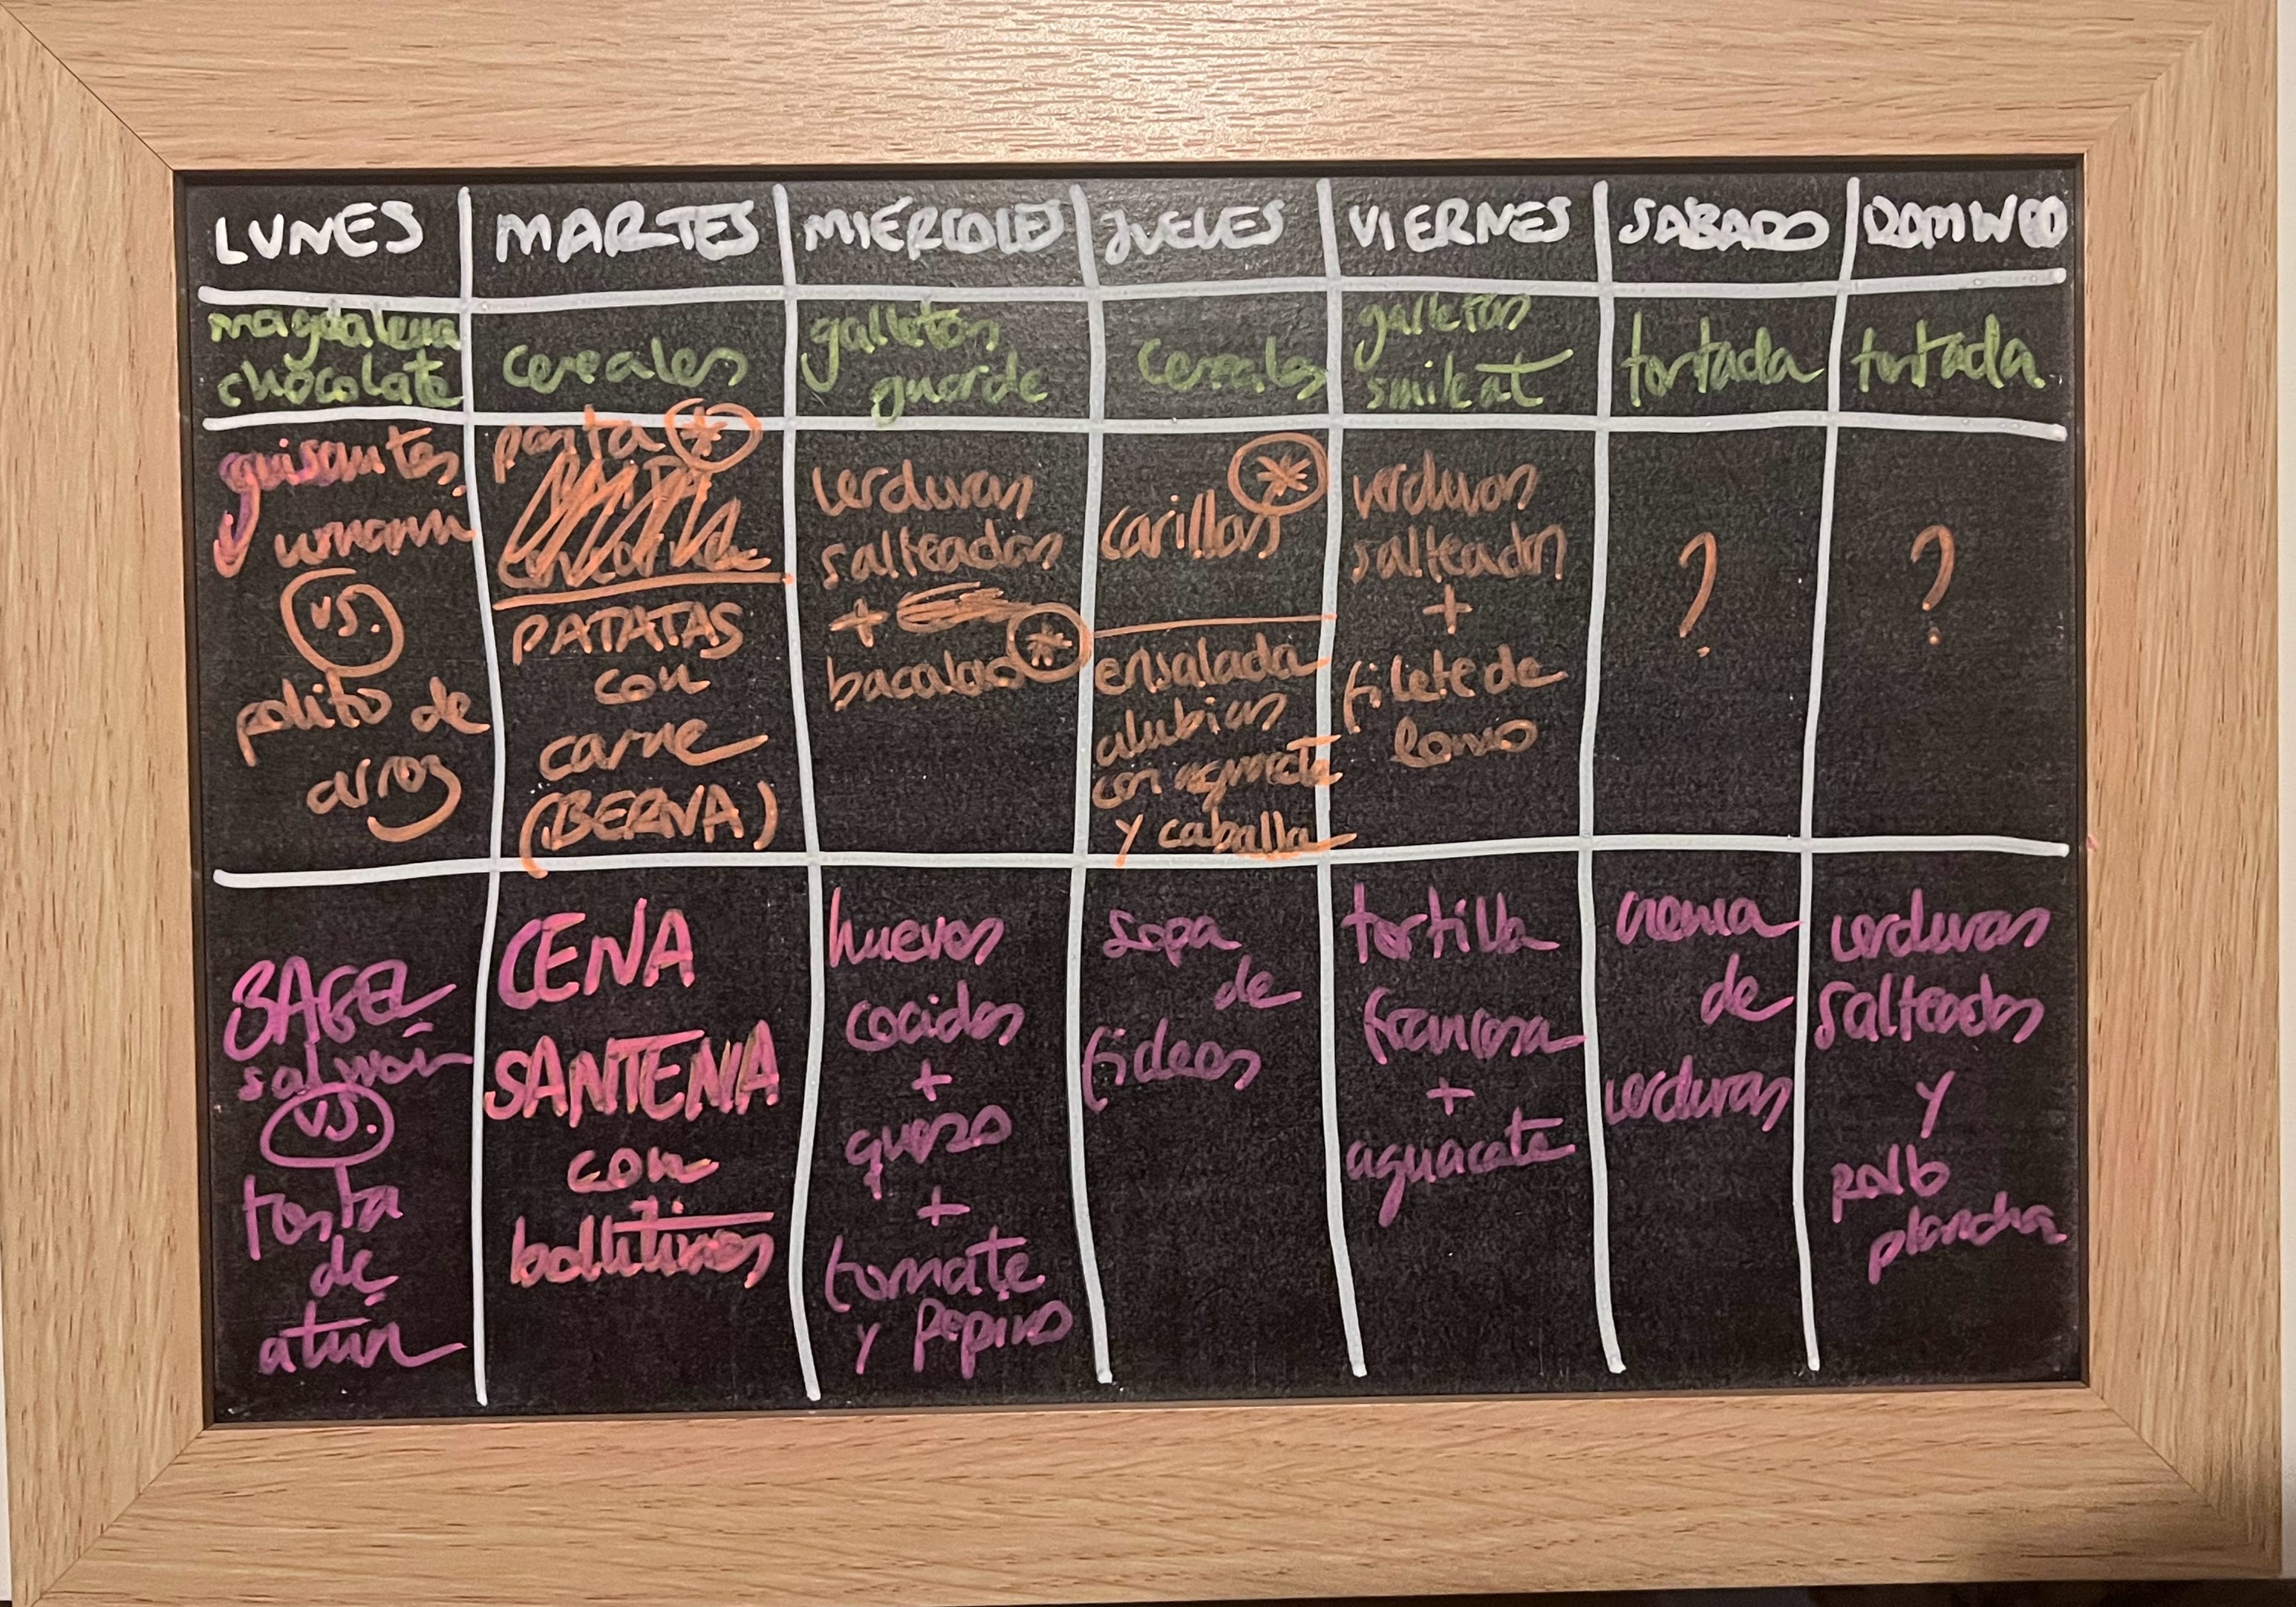 LUNES MARTES MIÉRCOLES JUEVES VIERNES SÁBADO DOMINGO
magdalena
chocolate
cereales
galletas
guarde
cereales
galletas
smileat
tortada
tortada
guisantes
vs.
pollito de
arroz
pasta *
PATATAS
con
carne
(BERNA)
verduras
salteadas
+
bacalao *
carillas *
ensalada
alubias
con aguacate
y caballa
verduras
salteadas
+
filete de
lomo
?
?
BAGEL
salmón
vs.
tosta
de
atún
CENA
SANTENA
con
huevos
cocidos
+
queso
+
tomate
y pepino
sopa
de
fideos
tortilla
francesa
+
aguacate
crema
de
verduras
verduras
salteadas
y
pollo
plancha